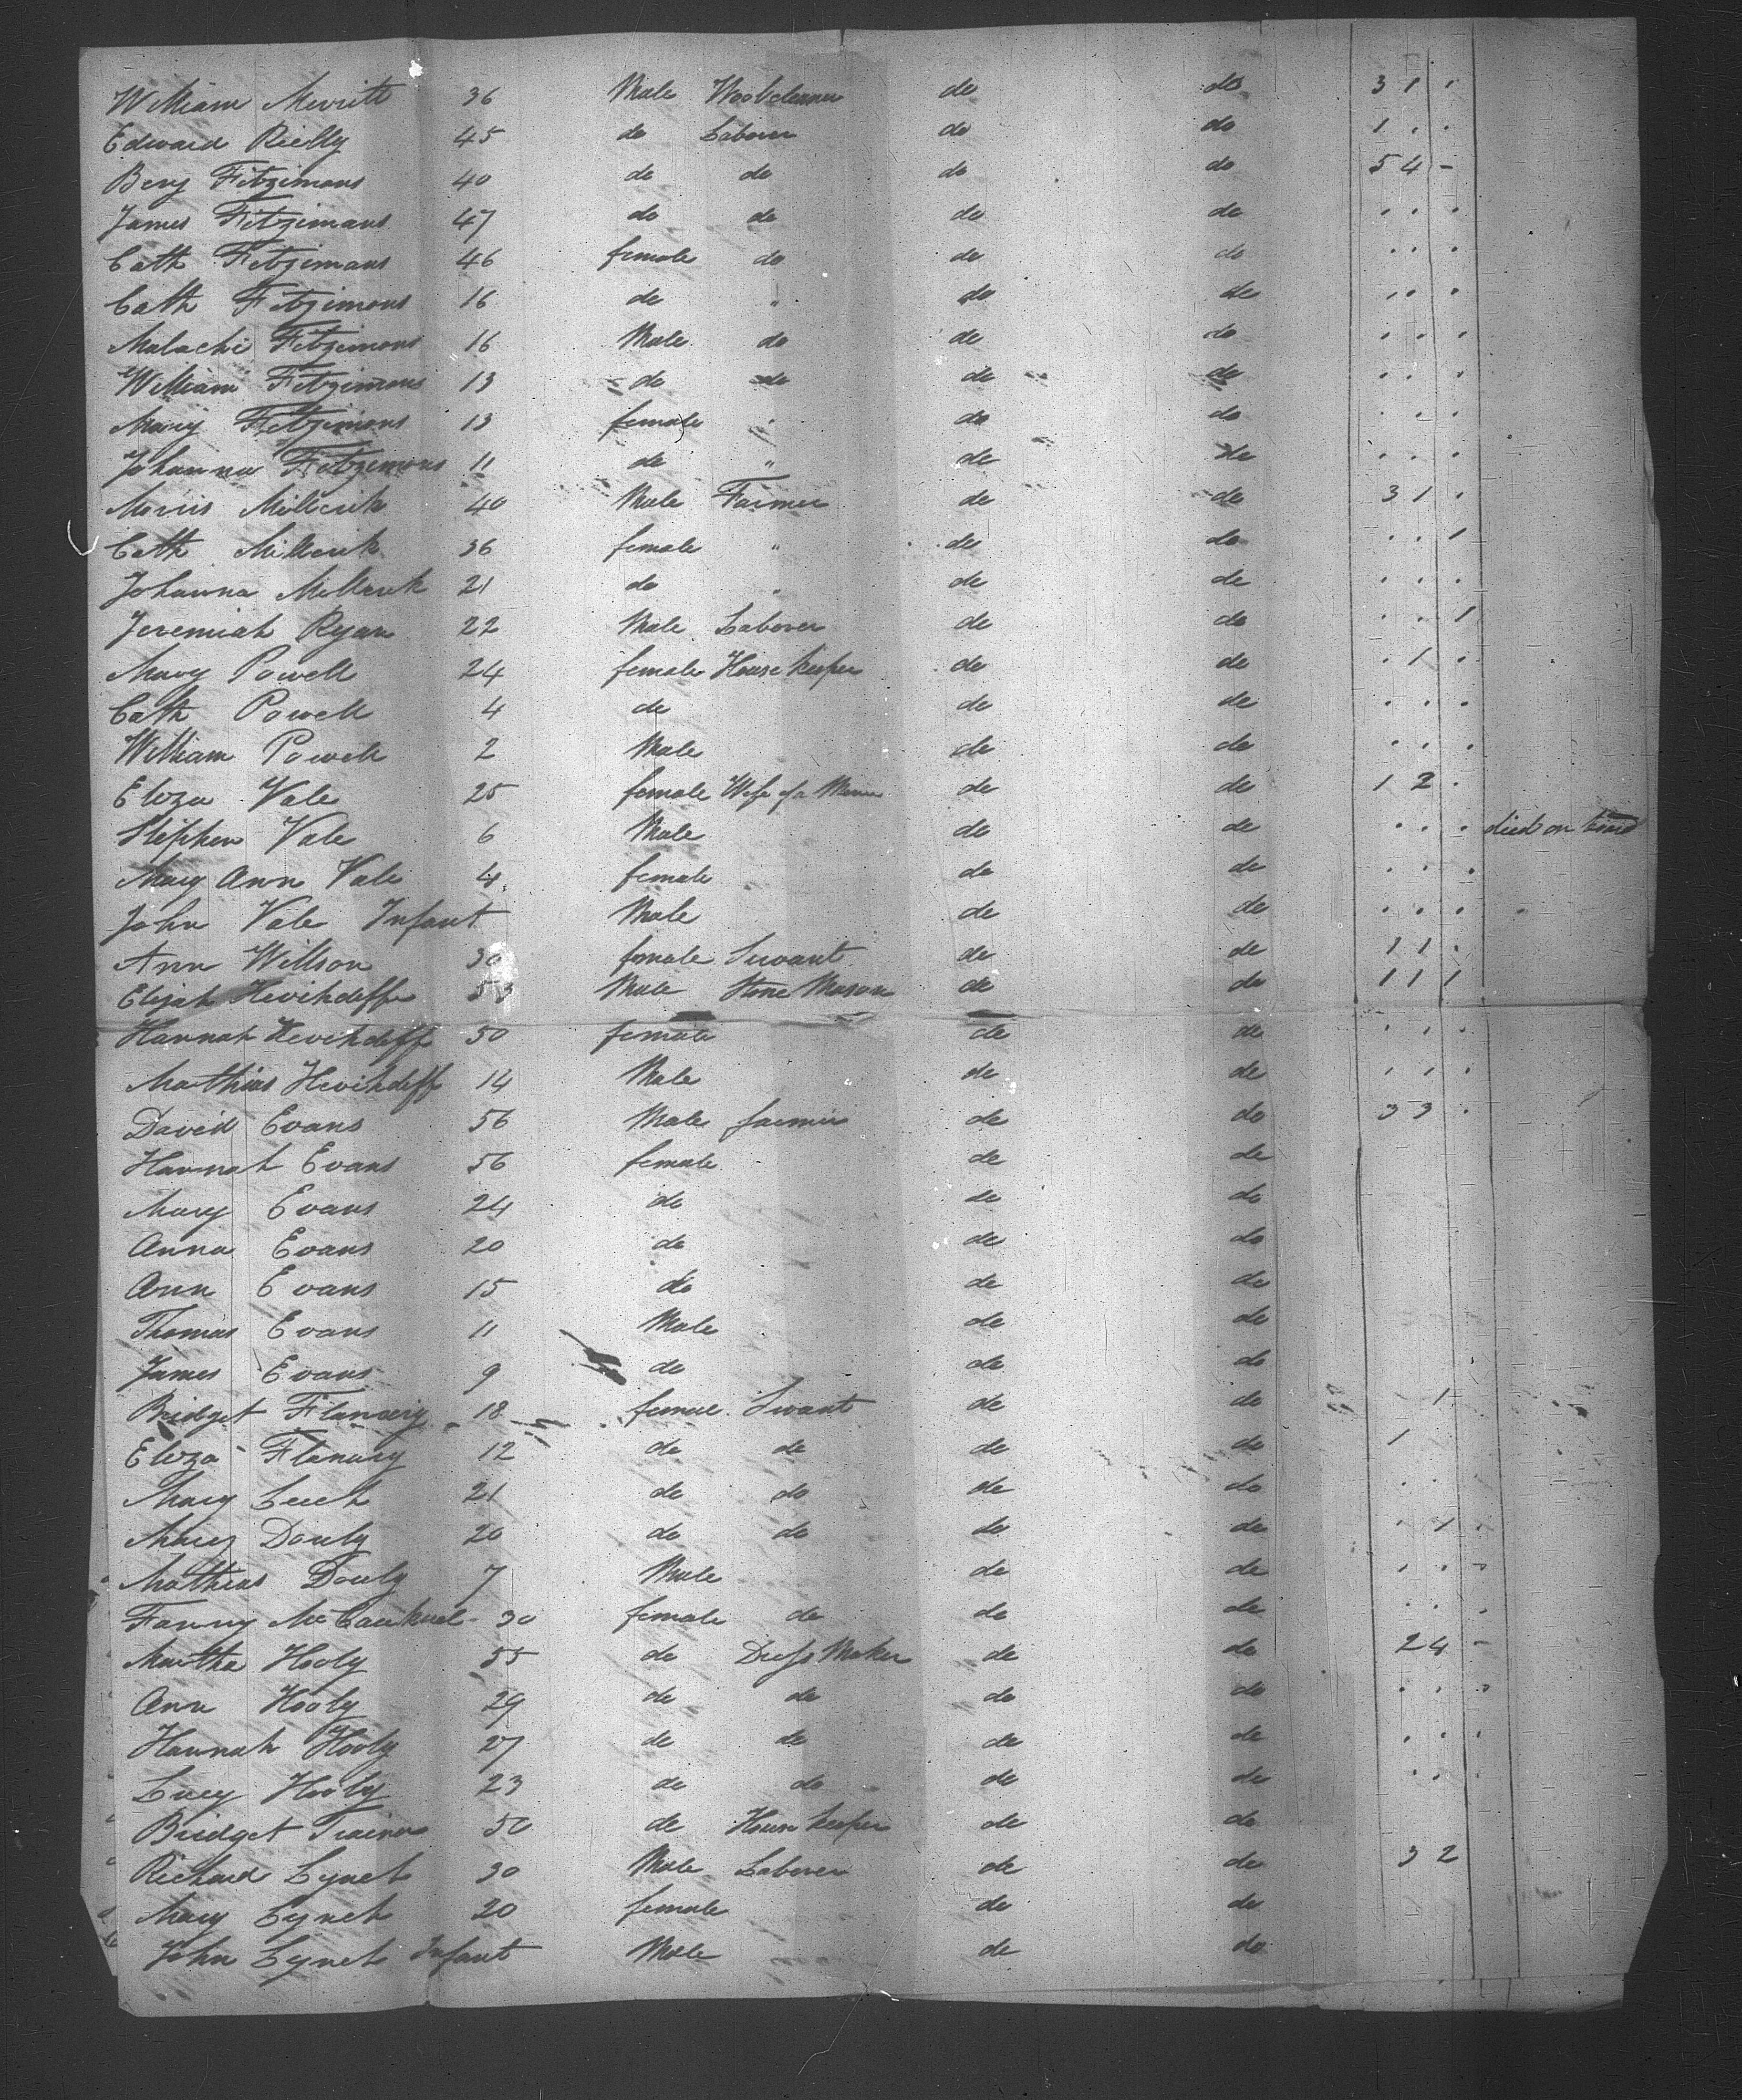 William Merritt 36 Male do do 3 1 .
Edward Rielly 45 do Laborer do do 1 . .
Benj Fitzimons 40 do do do do 5 4 -
James Fitzimans 47 do do do do . . .
Cath Fitzimans 46 female do do do . . .
Cath Fitzimons 16 do " do do . . .
Malachi Fitzimons 16 Male do do do . . .
William Fitzimons 13 do do do do . . .
Mary Fitzimons 13 female " do do . . .
Johanna Fitzimons 11 do " do do . . .
Morris Millerik 40 Male Farmer do do 3 1 .
Cath Millerik 36 female " do do . . 1
Johanna Millerik 21 do " do do . . .
Jeremiah Ryan 22 Male Laborer do do . . 1
Mary Powell 24 female House Keeper do do . 1 .
Cath Powell 4 do do do . . .
William Powell 2 Male do do . . .
Eliza Vale 25 female Wife of a do do 1 2 .
Stephen Vale 6 Male do do . . . died on board
Mary Ann Vale 4 female do do . . .
John Vale Infant Male do do . . .
Ann Willson 30 female Servant do do 1 1 .
Elijah 53 Male Stone Mason do do 1 1 1
Hannah 50 female do do . . .
Mathias 14 Male do do . . .
David Evans 56 Male farmer do do 3 3 .
Hannah Evans 56 female do do
Mary Evans 24 do do do
Anna Evans 20 do do do
Ann Evans 15 do do do
Thomas Evans 11 Male do do
James Evans 9 do do do
Bridget Flanary 18 female Servant do do 1
Eliza Flanary 12 do do do do 1
Mary Leech 21 do do do do . .
Mary Douly 20 do do do do . 1 .
Mathias Douly 7 Male do do . . .
Fanny 30 female do do do . . .
Martha Hooly 55 do Dress Maker do do 2 4 -
Ann Hooly 29 do do do do . . .
Hannah Hooly 27 do do do do . . .
Lucy Hooly 23 do do do do . . .
Bridget Trainor 50 do House Keeper do do
Richard Lynch 30 Male Laborer do do 3 2
Mary Lynch 20 female do do
John Lynch Infant Male do do